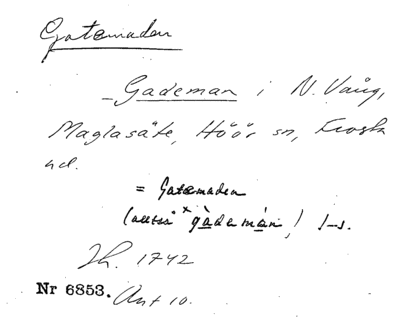 Gatemaden
_ Gademan i N. Vång,
Maglasäte, Höör sn, Frosta
hd.
= Gatemaden
(också *gàdemán) 
Jh. 1742
Nr 6853. Ant 10.